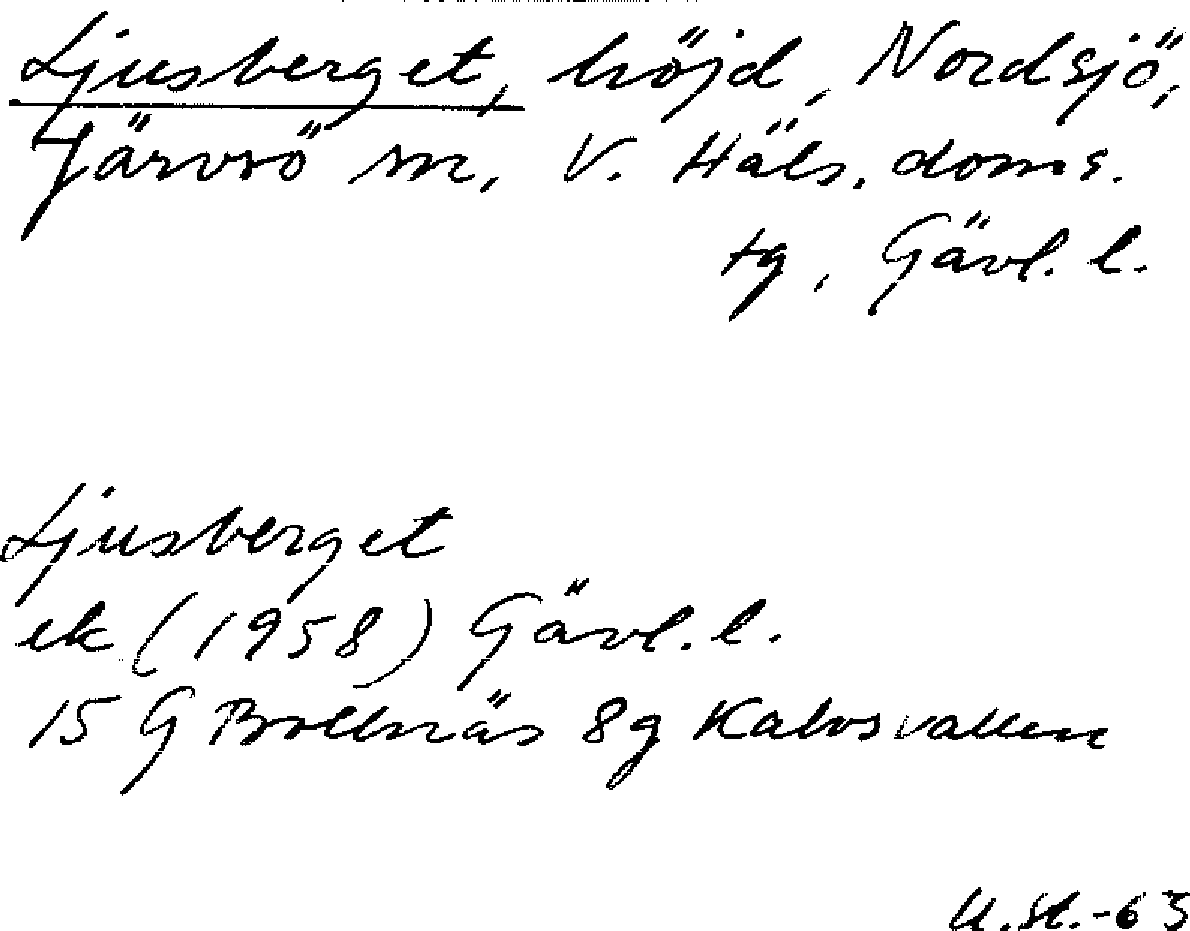 Ljusberget, höjd, Nordsjö,
Järvsö sn, V. Häls. doms.
tg, Gävl. l.
Ljusberget
ek (1958) Gävl. l.
15 G Bollnäs 8g Kalvsvallen
U.St.-63